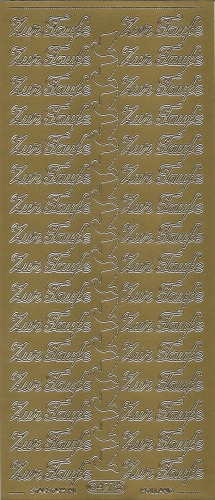 Zur Taufe Zur Taufe
Zur Taufe Zur Taufe
Zur Taufe Zur Taufe
Zur Taufe Zur Taufe
Zur Taufe Zur Taufe
Zur Taufe Zur Taufe
Zur Taufe Zur Taufe
Zur Taufe Zur Taufe
Zur Taufe Zur Taufe
Zur Taufe Zur Taufe
Zur Taufe Zur Taufe
Zur Taufe Zur Taufe
Zur Taufe Zur Taufe
Zur Taufe Zur Taufe
Zur Taufe Zur Taufe
Zur Taufe Zur Taufe
HOLLAND